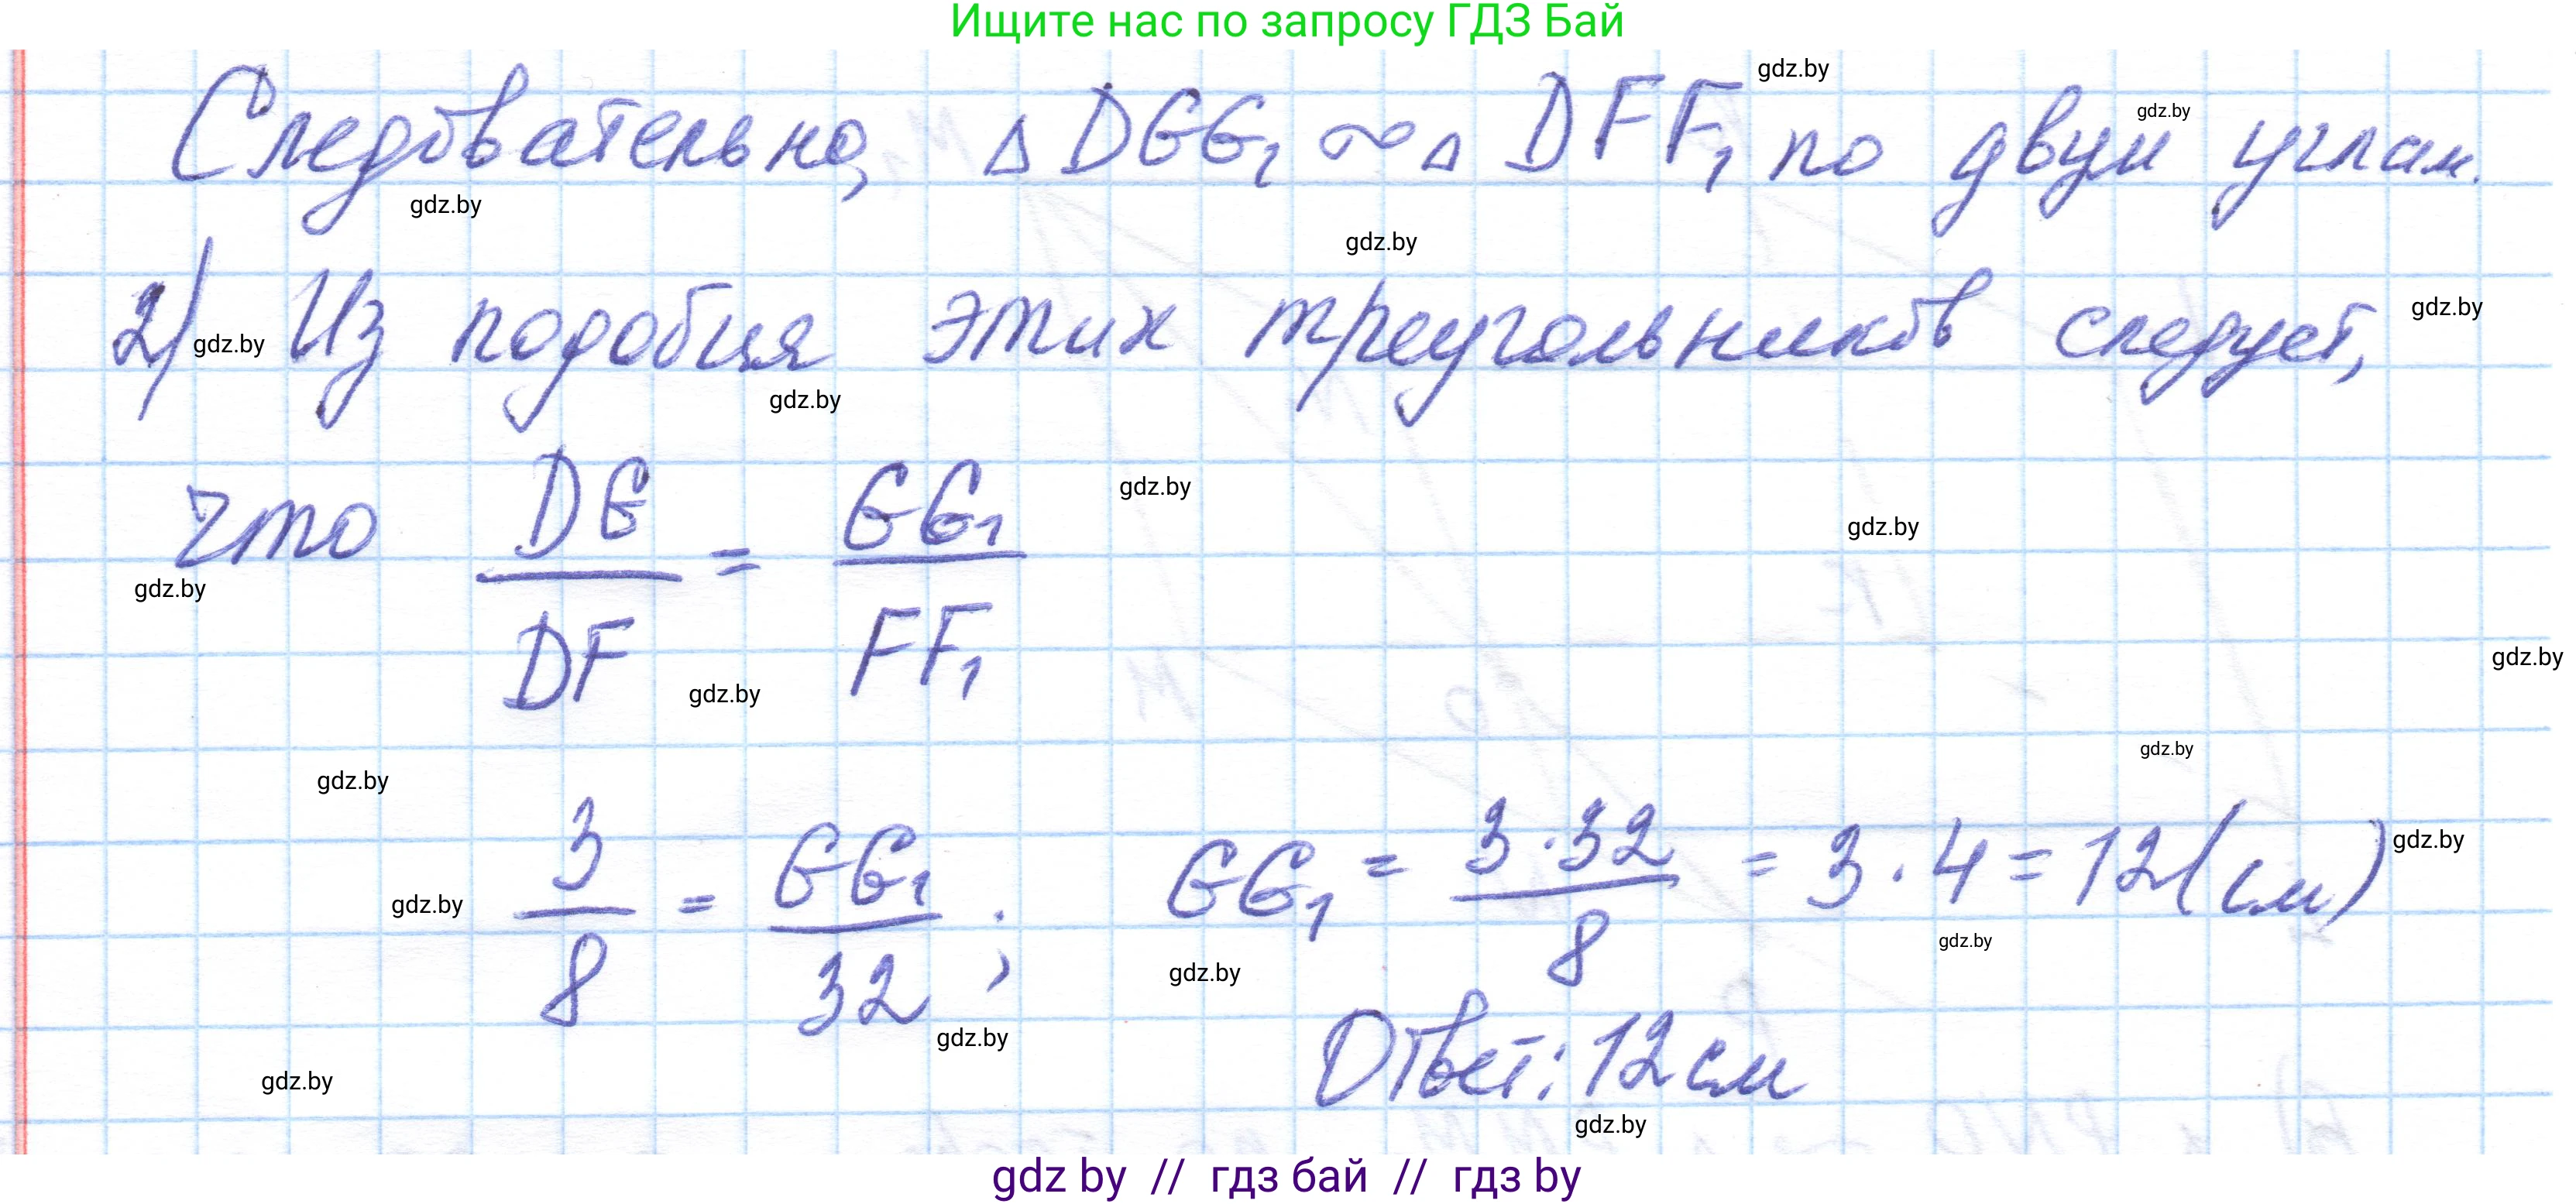 Ищите нас по запросу ГДЗ Бай
gdz.by
Следовательно, △DGG₁ ~ △ DFF₁ по двум углам.
gdz.by
gdz.by
gdz.by
2) Из подобия этих треугольников следует,
gdz.by
gdz.by
gdz.by
что DG/DF = GG₁/FF₁
gdz.by
gdz.by
gdz.by
gdz.by
gdz.by
gdz.by
gdz.by
3/8 = GG₁/32 ; GG₁ = 3·32/8 = 3·4 = 12(см)
gdz.by
gdz.by
gdz.by
gdz.by
gdz.by
Ответ: 12 см
gdz.by
gdz.by
gdz by // гдз бай // гдз by